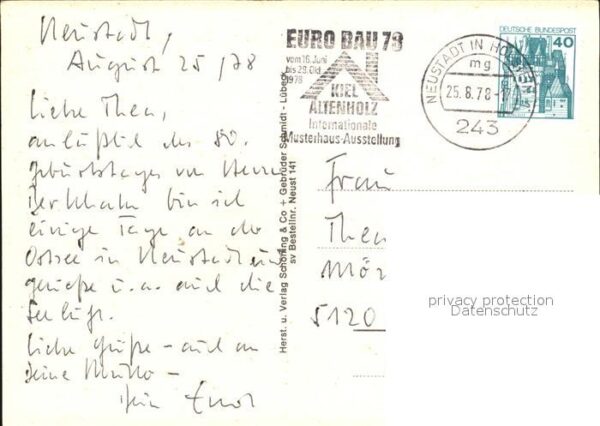 Neustadt,
August 25/78
Liebe Thea,
anläßlich des 80.
Geburtstages von Herrn
bin ich
einige Tage an der
Ostsee in Neustadt und
genieße u.a. auch die
Seeluft.
Liebe Grüße - auch an
Deine Mutter -
Dein
Herst. u. Verlag Schöning & Co + Gebrüder Schmidt - Lübeck
sv Bestellnr. Neust 141
EURO BAU 78
vom 16. Juni
bis 29. Okt.
1978
KIEL
ALTENHOLZ
Internationale
Musterhaus-Ausstellung
NEUSTADT IN HOLSTEIN
mg
25.8.78-
243
DEUTSCHE BUNDESPOST
40
Frau
Thea
Mör
5120
privacy protection
Datenschutz